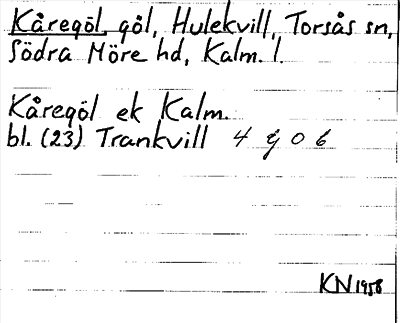 Kåregöl, göl, Hulekvill, Torsås sn,
Södra Möre hd, Kalm. l.
Kåregöl ek Kalm.
bl. (23) Trankvill 4 G 0 6
KN 1958